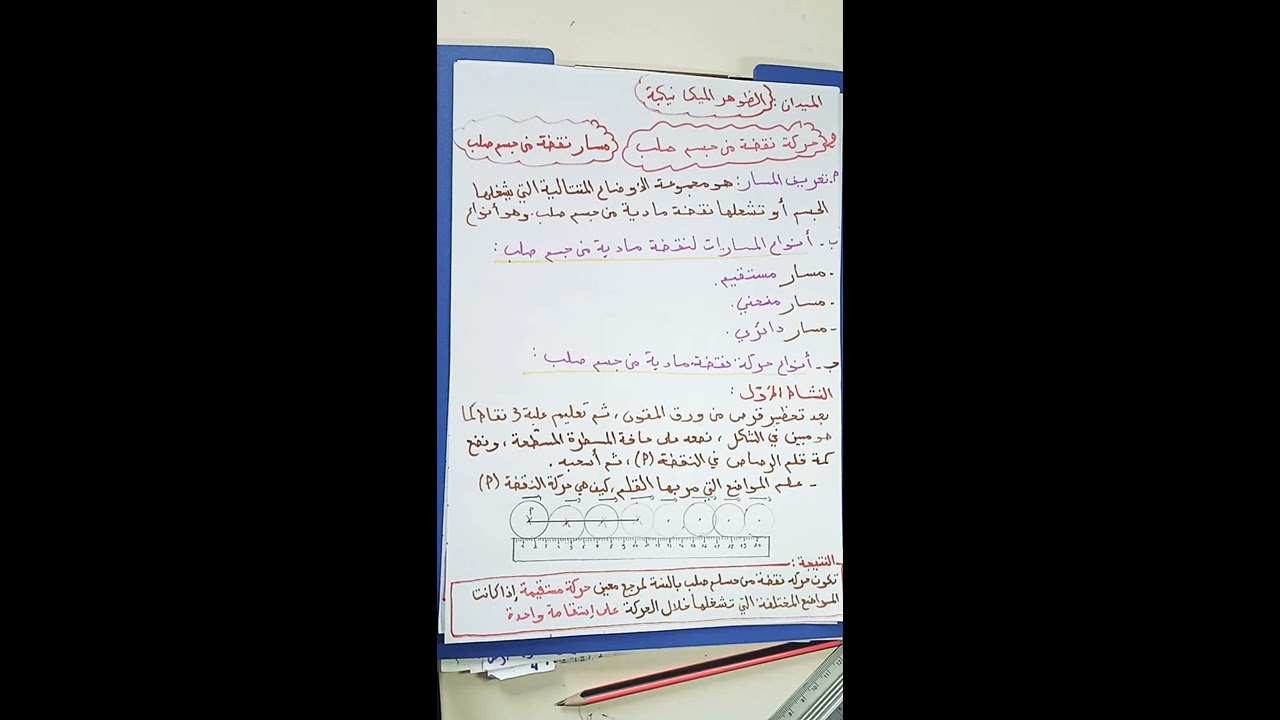 الميدان: الظوهر الميكانيكية
حركة نقطة من جسم صلب
مسار نقطة من جسم صلب
P. تعريف المسار: هو مجموعة الأوضاع المتتالية التي يشغلها
الجسم أو تشغلها نقطة مادية من جسم صلب. وهو أنواع
ب- أنواع المسارات لنقطة مادية من جسم صلب:
- مسار مستقيم.
- مسار منحني.
- مسار دائري.
ج- أنواع حركة نقطة مادية من جسم صلب:
النشاط الأول:
بعد تحظير قرص من ورق المقوى، ثم تعليم علية 3 نقاط كما
هو مبين في الشكل، نضعه على حافة المسطرة المسطحة، ونضع
قلم الرصاص في النقطة (P)، ثم أسحبه.
- علم المواضع التي مر بها القلم، كيف هي حركة النقطة (P)
P
النتيجة:
تكون حركة نقطة من صلب بالنسبة لمرجع معين حركة مستقيمة إذا كانت
المواضع المختلفة التي تشغلها خلال الحركة على إستقامة واحدة